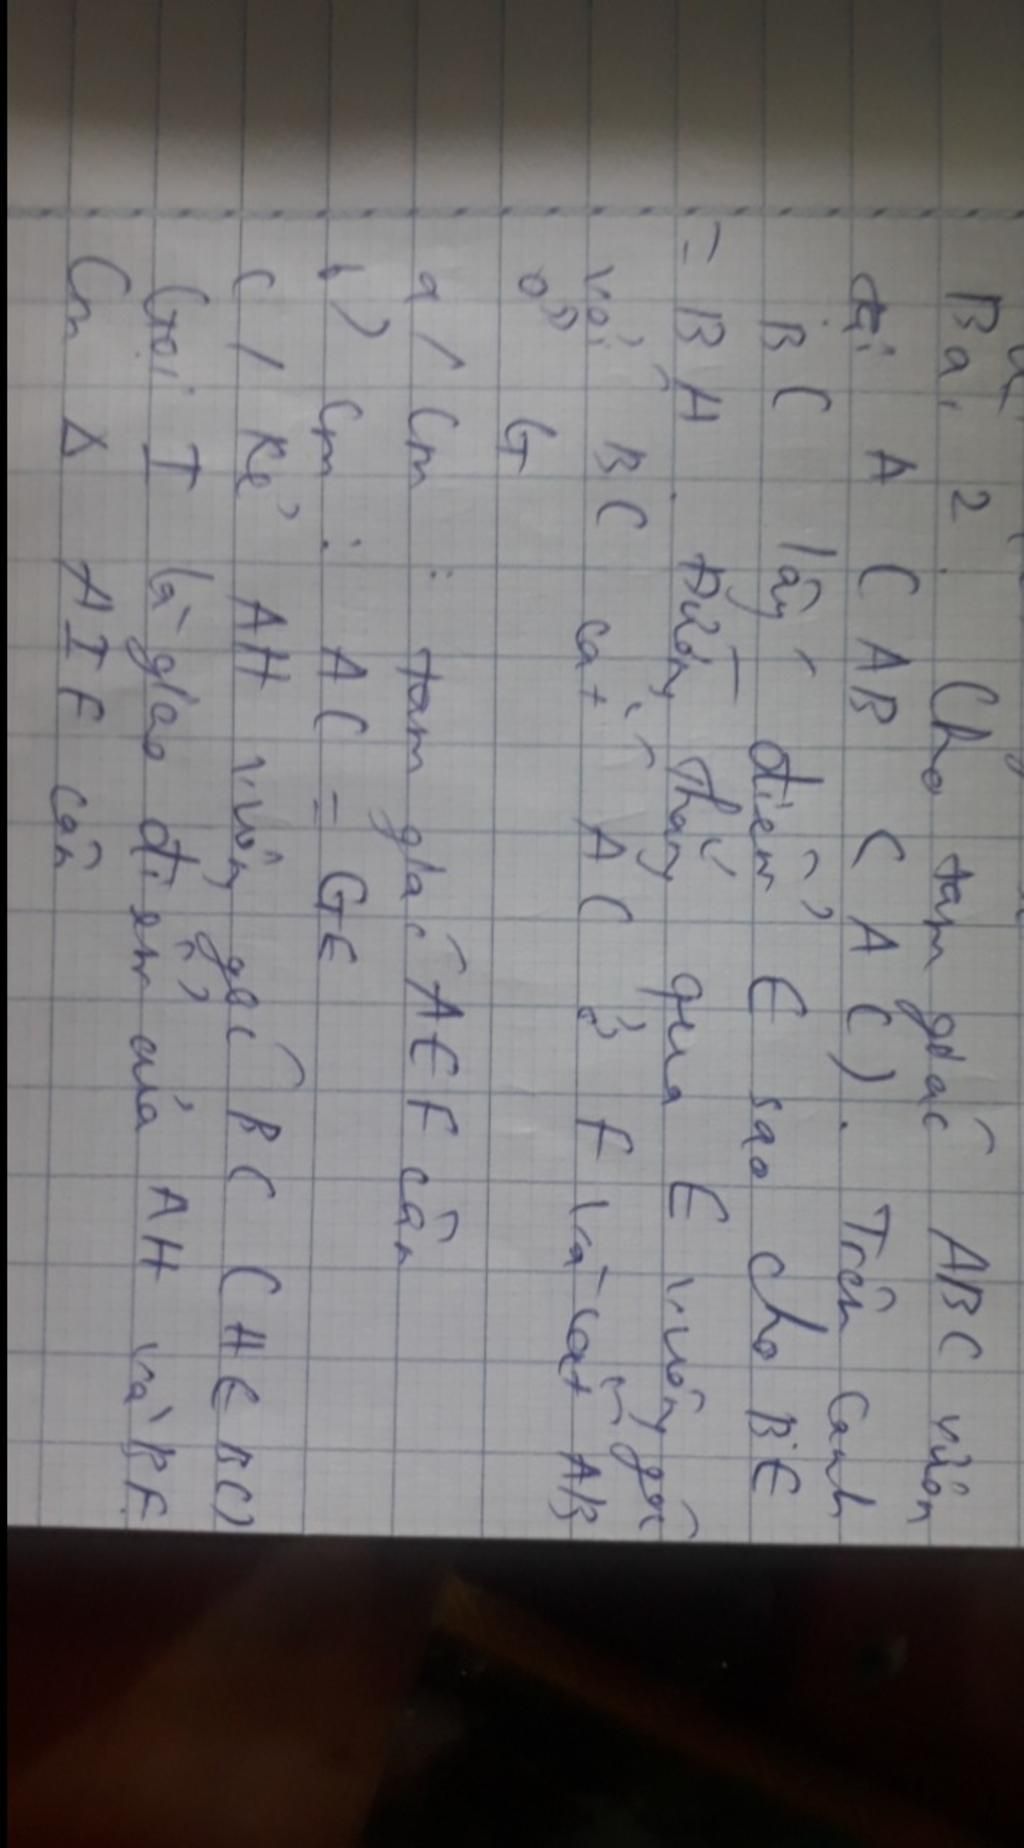 Bài 2. Cho tam giác ABC vuôn
tại A ( AB < AC). Trên cạnh
BC lấy điểm E sao cho BE
= BA. Đường thẳng qua E vuông góc
với BC cắt AC ở F và cắt AB
ở G
a/ Cm : tam giác AEF cân
b) Cm : AC = GE
c/ Kẻ AH vuông góc BC (H E BC)
Gọi I là giao điểm của AH và BF
Cm Δ AIF cân